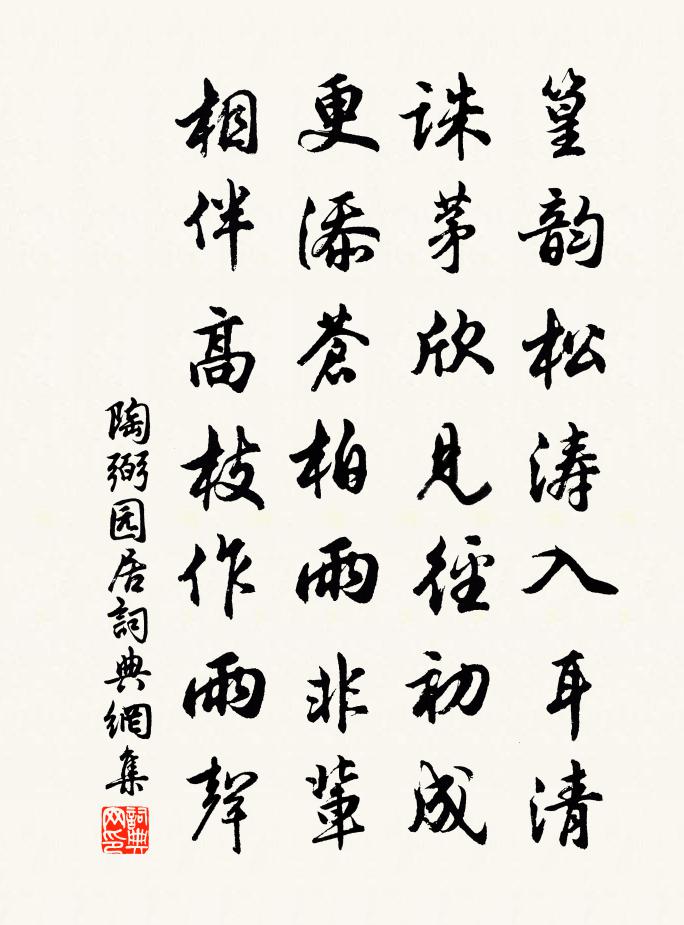 篁韵松涛入耳清
诛茅欣见径初成
更添苍柏雨非辈
相伴高枝作雨声
陶弼园居詞典網集
詞典网印